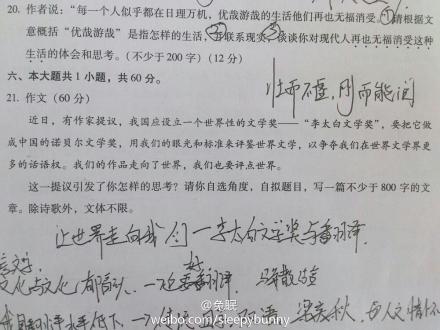 20. 作者说：“每一个人似乎都在日理万机，优哉游哉的生活他们再也无福消受。”请根据文
意概括“优哉游哉”是指怎样的生活，并联系现实，谈谈你对现代人再也无福消受这种
生活的体会和思考。（不少于200字）（12分）
六、本大题共1小题，共60分。
21. 作文（60分）
近日，有作家提议，我国应设立一个世界性的文学奖——“李太白文学奖”，要把它做
成中国的诺贝尔文学奖，用我们的眼光和标准来评鉴世界文学，以争夺我们在世界文学界更
多的话语权。我们的作品走向了世界，我们也要点评世界。
这一提议引发了你怎样的思考？请你自选角度，自拟题目，写一篇不少于800字的文
章。除诗歌外，文体不限。
让世界走向我们—李太白文学奖与翻译
文化与文化
翻译
低下
@兔眠
weibo.com/sleepybunny